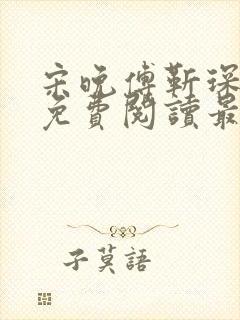 宋晚傅靳琛
免費閱讀最
子莫語